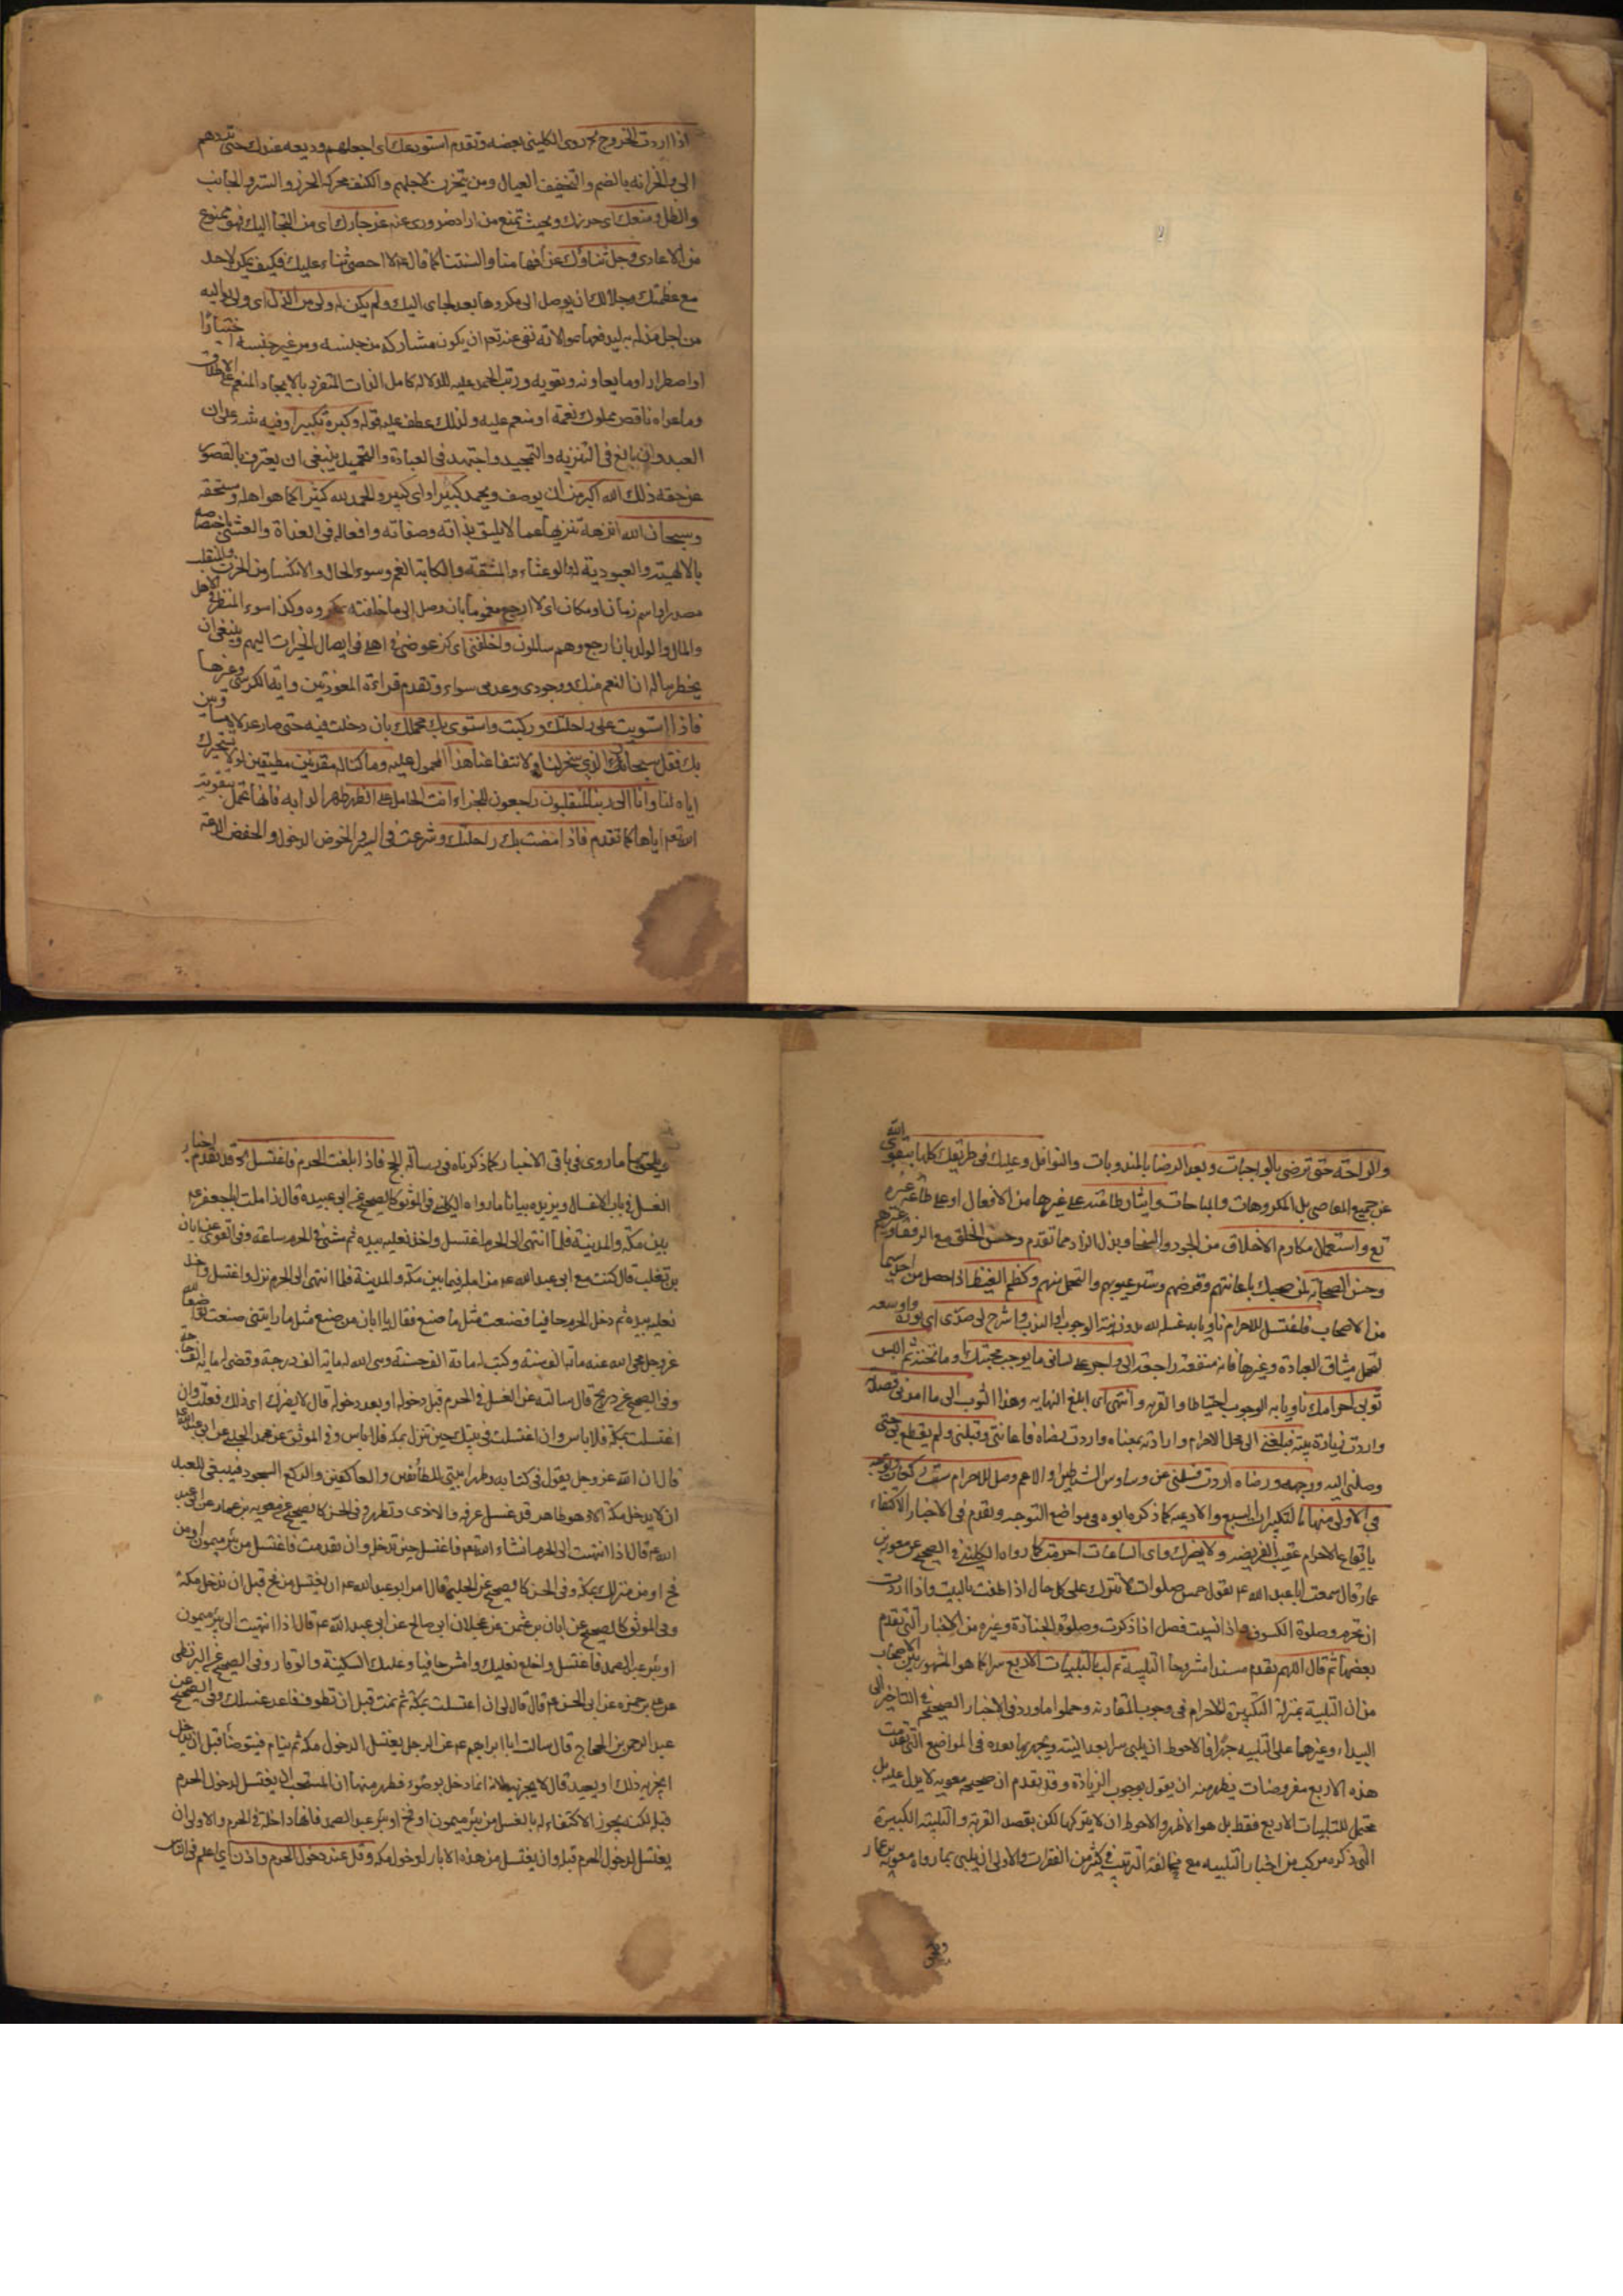 اذا اردت الخروج روى الكليني بعضه وتقدم استودعك اى اجعلهم وديعه عندك حتى تردهم
الى والخزانه بالضم والتخفيف العيال ومن يتحزن لاجلهم والكنف محركة الحرز والستر والجانب
والظل ومنعك اى حرزك وبحيث تمنع من اراد ضرورى عنه عز جارك اى من التجأ اليك فهو ممنوع
من الاعادى وجل ثناؤك عن افهامنا والسنتنا كما قال لا احصى ثناء عليك فكيف يمكن لاحد
مع عظمتك وجلالك ان يوصل الى مكروها بعد لجاى اليك ولم يكن له ولى من الذل اى ولى يواليه
من اجل مذلة به ليدفعها بموالاته نفى عنه تعالى ان يكون مشاركه من جنسه ومن غير جنسه اختيارا
او اضطرارا وما يعاونه ويقويه ورتب الحمد عليه للدلالة كامل الذات المتفرد بالايجاد المنعم على الاطلاق
وما عداه ناقص مملوك نعمة او منعم عليه ولذلك عطف عليه قوله وكبره تكبيرا وفيه على ان
العبد وان بالغ فى التنزيه والتمجيد واجتهد فى العبادة والتحميد ينبغى ان يعترف بالقصور
عن حقه ذلك الله اكبر من ان يوصف ويحمد كبيرا اى كبير والحمد لله كثيرا كما هو اهله ومستحقه
وسبحان الله انزهه تنزيها عما لا يليق بذاته وصفاته وافعاله فى الغداة والعشى
بالالهية والعبودية له والوعثاء والمشقة والكابة الغم وسوء الحال والانكسار من الحزن والمنقلب
مصدر او اسم زمان او مكان اى لا ارجع مغموما بان وصل الى ما خلفته مكروه وكذا سوء المنظر فى الاهل
والمال والولد بان ارجع وهم سالمون واخلفنى اى كن عوضى فى اهلى فى ايصال الخيرات اليهم وينبغى ان
يخطر بباله ان النعم منك ووجودى وعدمى سواء وتقدم قراءة المعوذتين واية الكرسى وغيرها
فاذا استويت على راحلتك وركبت واستوى بك محملك بان دخلت فيه حتى صار عدلا
بك فقل سبحان الذى سخر لنا ولانتفاعنا هذا المحمول عليه وما كنا له مقرنين مطيقين لولا تسخيرك
اياه لنا وانا الى ربنا لمنقلبون راجعون للجزاء انت الحامل على الظهر ظهر الدابه فانها تحمل بتقويه
الله تعالى اياها كما تقدم فاذا مضت بك راحلتك وشرعت فى السير والخوض الدخول والخفض الدعة
والراحة حتى ترضى بالواجبات وبعد الرضا بالمندوبات والنوافل وعليك فى طريقك كلها بتقوى الله
عن جميع المعاصى بل المكروهات والمباحات وايثار طاعته على غيرها من الافعال او على طاعة غيره
تع واستعمال مكارم الاخلاق من الجود والسخا وبذل الزاد مما تقدم وحسن الخلق مع الرفقا وغيرهم
وحسن الصحابه لمن صحبك باعانتهم وقرضهم وستر عيوبهم والتحمل منهم وكظم الغيظ اذا حصل من احد سيما
من الاصحاب فاغتسل للاحرام ناويا به غسله لله بدون نية الوجوب او الندب واشرح لى صدرى اى نوره ووسعه
لتحمل مشاق العبادة وغيرها فان منفعته راجعة الى واجر على لسانى ما يوجب محبتك وما تحبه ثم البس
ثوبى احرامك ناويا به الوجوب احتياطا والقربه وانتهى اى ابلغ النهايه وهذا الثوب الى ما امرنى قصدك
واردت زيادة بيته فبلغنى الى محل الاحرام وارادته بمعناه واردت رضاه فاعاننى وقبلنى ولم يقطع بى حتى
وصلنى اليه ووجهه ورضاه اردت فسلمنى من وساوس الشياطين او الاعم وصل للاحرام ست ركعات
فى الاولى منها بالتكبيرات السبع والادعيه كما ذكره ابوه فى مواضع التوجه وتقدم فى الاخبار الاكتفاء
بايقاع الاحرام عقيب الفريضه ولا يضرك واى الساعات احرمت كما رواه الكلينى فى الصحيح عن معويه بن
عمار قال سمعت ابا عبد الله ع يقول خمس صلوات لا تترك على كل حال اذا طفت بالبيت واذا اردت
ان تحرم وصلوة الكسوف واذا نسيت فصل اذا ذكرت وصلوة الجنازة وغيره من الاخبار التى تقدم
بعضها ثم قال اللهم تقدم مسندا مشروحا التلبية ثم لب بالتلبيات الاربع سرا كما هو المشهور بين الاصحاب
من ان التلبية بمنزلة التكبيرة للاحرام فى وجوب المقارنه وحملوا ما ورد فى الاخبار الصحيحة فى التاخير الى
البيداء وغيرها على التلبيه جهرا فالاحوط ان يلبى سرا بعد النيته ويجهر بها بعده فى المواضع التى تقدمت
هذه الاربع مفروضات يظهر منه ان يقول بوجوب الزيادة وقد تقدم ان صحيحه معويه لا يدل عليه بل
يحتمل للتلبيات الاربع فقط بل هو الاظهر والاحوط ان لا يتركها لكن بقصد القربة والتلبيته الكبيرة
التى ذكره مركب من اخبار التلبيه مع مخالفة الترتيب فى كثير من الفقرات والاولى ان يلبى بما رواه معويه بن عمار
ما روى فى باقى الاخبار كما ذكرناه فى رسالة الحج فاذا بلغت الحرم فاغتسل قد تقدم اخبار
الغسل فى باب الاغسال ويزيده بيانا ما رواه الكلينى فى الموثق كالصحيح عن ابى عبيدة قال زاملت ابا جعفر ع
بين مكة والمدينة فلما انتهى الى الحرم اغتسل واخذ نعليه بيده ثم مشى فى الحرم ساعة وفى القوى عن ابان
بن تغلب قال كنت مع ابى عبد الله ع مزامله فيما بين مكة والمدينة فلما انتهى الى الحرم نزل واغتسل واخذ
نعليه بيده ثم دخل الحرم حافيا فصنعت مثل ما صنع فقال يا ابان من صنع مثل ما رايتنى صنعت تواضعا لله
عز وجل محى الله عنه ماة الف سيئة وكتب له ماة الف حسنة وبنى الله له ماية الف درجة وقضى له ماية الف حاجة
وفى الصحيح عن ذريح قال سالته عن الغسل فى الحرم قبل دخوله او بعد دخوله قال لا يضرك اى ذلك فعلت وان
اغتسلت بمكة فلا باس وان اغتسلت فى بيتك حين تنزل بمكة فلا باس وفى الموثق عن محمد الحلبى عن ابى عبد الله ع
قال ان الله عز وجل يقول فى كتابه وطهر بيتى للطائفين والعاكفين والركع السجود فينبغى للعبد
ان لا يدخل مكة الا وهو طاهر قد غسل عرقه والاذى وتطهر وفى الحسن كالصحيح عن معويه بن عمار عن ابى عبد
الله ع قال اذا انتهيت الى الحرم انشاء الله تعم فاغتسل حين تدخله وان تقدمت فاغتسل من بئر ميمون او من
فخ او من منزلك بمكة وفى الحسن كالصحيح عن الحلبى قال امر ابو عبد الله ع ان يغتسل من فخ قبل ان ندخل مكة
وفى الموثق كالصحيح عن ابان بن عثمن عن عجلان ابى صالح عن ابى عبد الله ع قال اذا انتهيت الى بئر ميمون
او بئر عبد الصمد فاغتسل واخلع نعليك وامش حافيا وعليك السكينة والوقار وفى الصحيح عن البزنطى
عن على بن حمزه عن ابى الحسن ع قال قال لى ان اغتسلت بمكة ثم نمت قبل ان تطوف فاعد غسلك وفى الصحيح عن
عبد الرحمن بن الحجاج قال سالت ابا ابراهيم ع عن الرجل يغتسل الدخول مكه ثم ينام فيتوضأ قبل ان يدخل
ايجزيه ذلك او يعيد قال لا يجزيه لانه انما دخل بوضوء فظهر منها ان المستحب ان يغتسل لدخول الحرم
قبله لكنه يجوز الاكتفاء له بالغسل من بئر ميمون او فخ او بئر عبد الصمد فانها داخلة فى الحرم والاولى ان
يغتسل لدخول الحرم قبله وان يغتسل من هذه الابار لدخول مكه وقل عند دخول الحرم واذن اى اعلم فى الناس